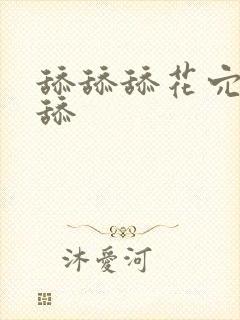 舔舔舔花穴
舔
沐愛河